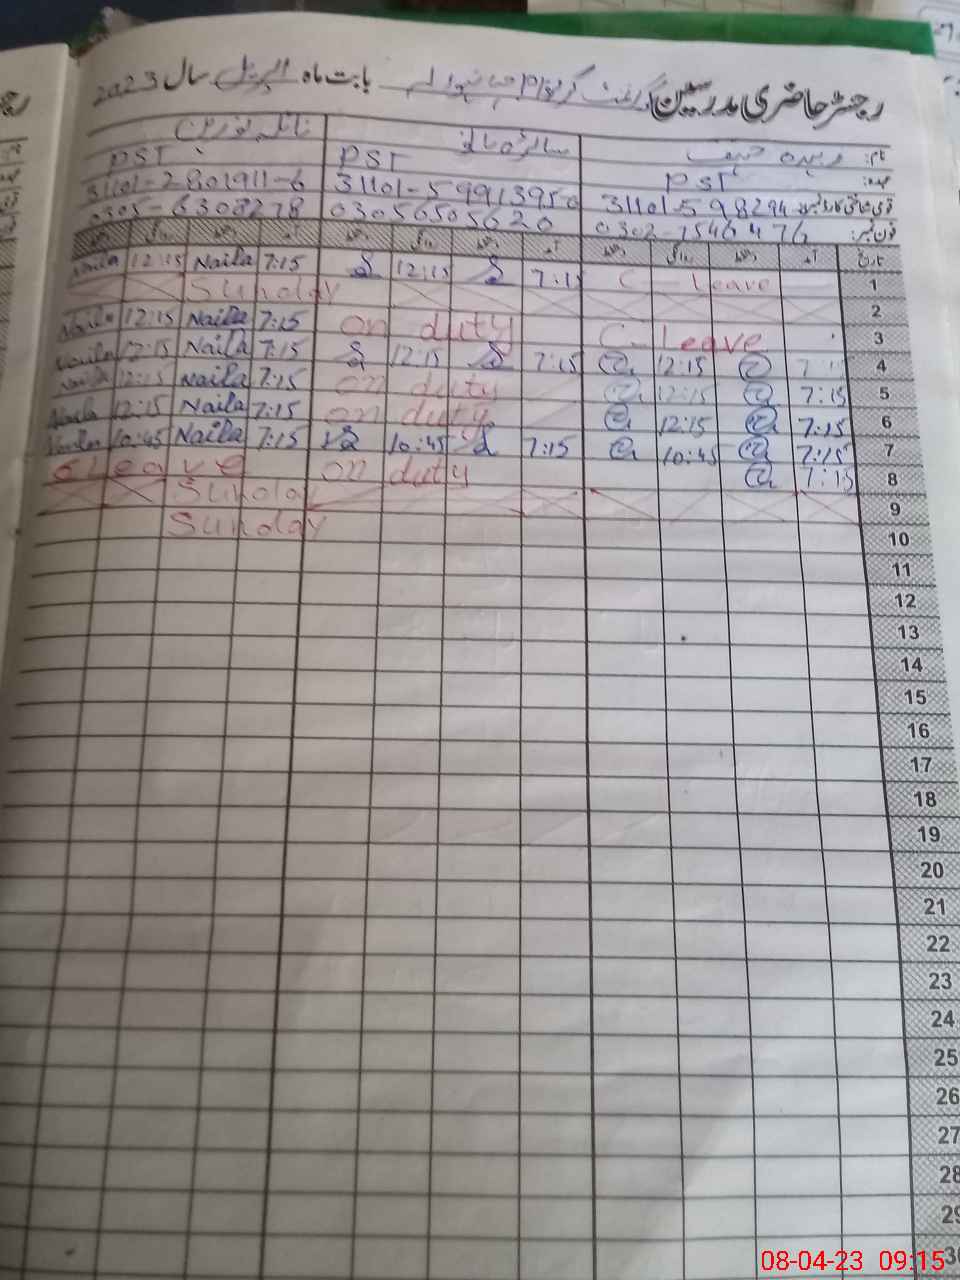 رجسٹر حاضری مدرسین گورنمنٹ گرلز بابت ماہ اپریل سال 2023
نام:
عہدہ: PST PST PST
قومی شناختی کارڈ نمبر: 31101-598294 31101-59913950 31101-2801911-6
فون نمبر: 0302-7546476 03056505620 0305-6308278
تاریخ آمد دستخط روانگی دستخط آمد دستخط روانگی دستخط آمد دستخط روانگی دستخط
1 C-Leave 7:15 12:15 7:15 Naila 12:15 Naila
2 Sunday
3 C-Leave on duty 7:15 Naila 12:15 Naila
4 7:15 12:15 7:15 12:15 7:15 Naila 12:15 Naila
5 7:15 12:15 on duty 7:15 Naila 12:15 Naila
6 7:15 12:15 on duty 7:15 Naila 12:15 Naila
7 7:15 10:45 7:15 10:45 7:15 Naila 10:45 Naila
8 7:15 on duty Leave
9 Sunday
10 Sunday
11
12
13
14
15
16
17
18
19
20
21
22
23
24
25
26
27
28
29
30
08-04-23 09:15